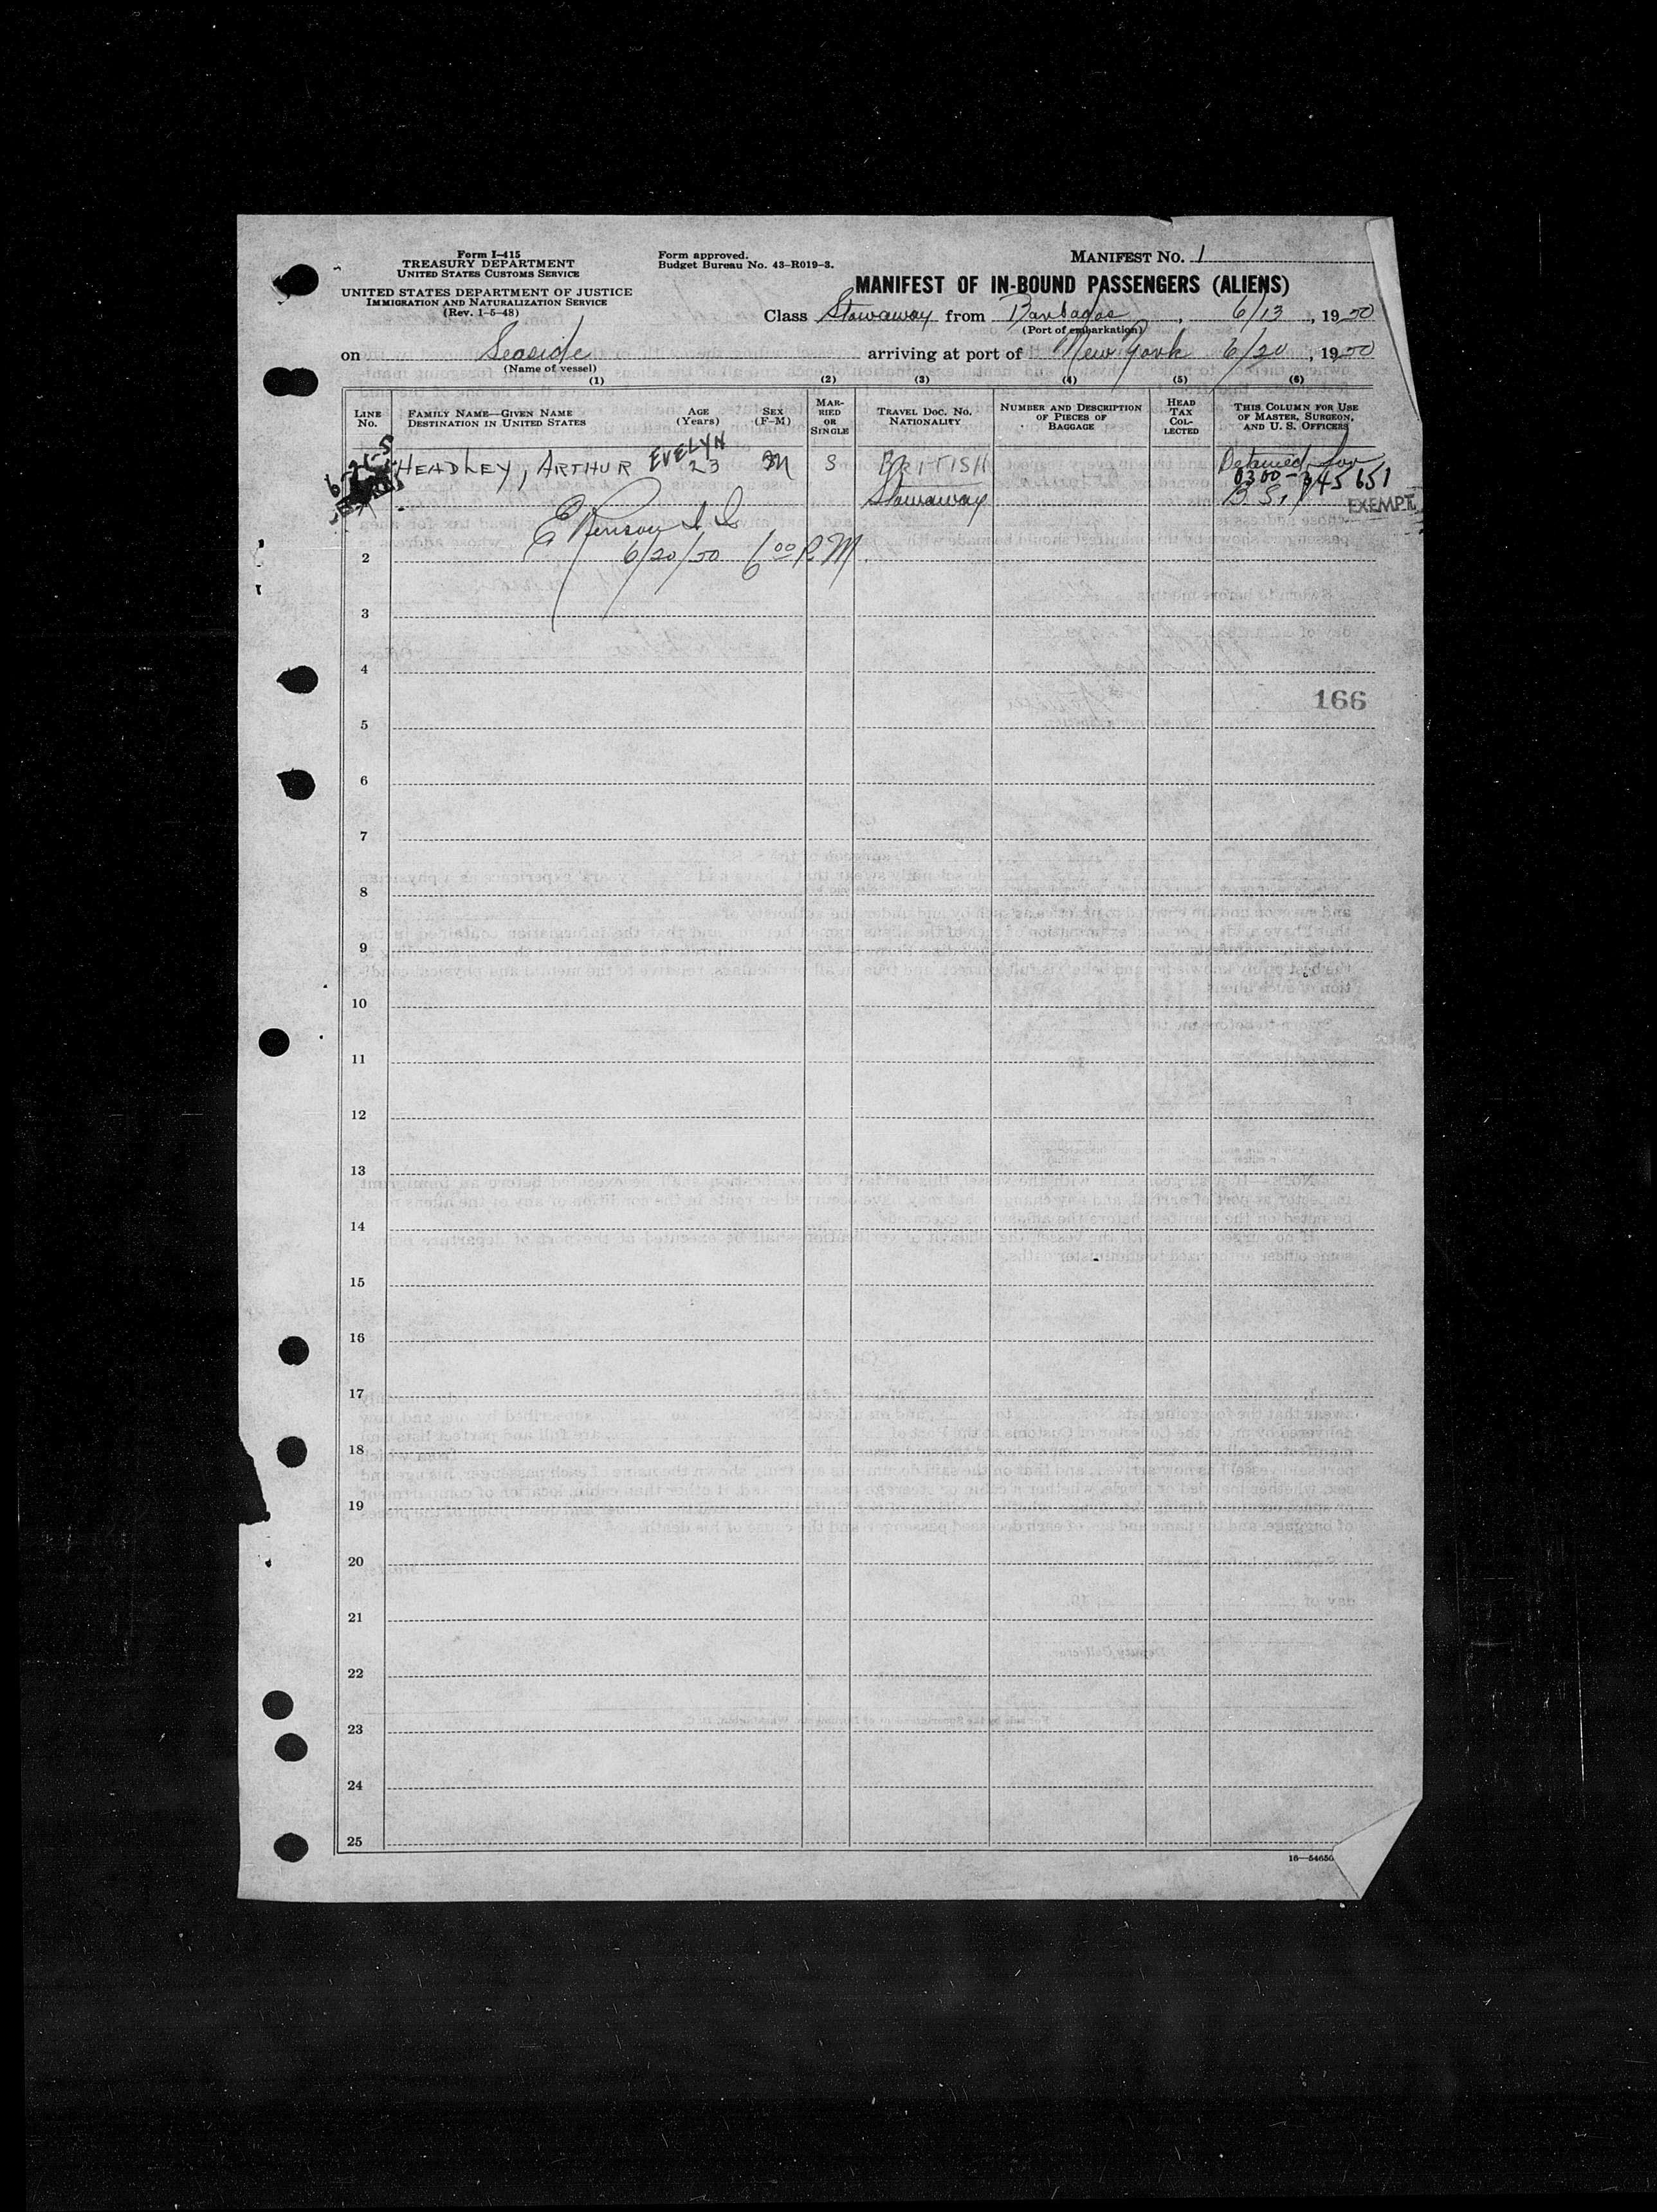 Form I-415
TREASURY DEPARTMENT
UNITED STATES CUSTOMS SERVICE
UNITED STATES DEPARTMENT OF JUSTICE
IMMIGRATION AND NATURALIZATION SERVICE
(Rev. 1-5-48)
Form approved.
Budget Bureau No. 43-R019-3.
MANIFEST No. 1
MANIFEST OF IN-BOUND PASSENGERS (ALIENS)
Class Stowaway from Barbados, 6/13, 1950
(Port of embarkation)
on Seaside arriving at port of New York 6/20, 1950
(Name of vessel)
(1) (2) (3) (4) (5) (6)
LINE No.
FAMILY NAME—GIVEN NAME
DESTINATION IN UNITED STATES
AGE (Years)
SEX (F-M)
MARRIED OR SINGLE
TRAVEL DOC. No. NATIONALITY
NUMBER AND DESCRIPTION OF PIECES OF BAGGAGE
HEAD TAX COLLECTED
THIS COLUMN FOR USE OF MASTER, SURGEON, AND U. S. OFFICERS
HEADLEY, ARTHUR EVELYN 23 M S BRITISH Detained for
0300-345651
Stowaway B S I
EXEMPT
6/20/50 6 00 P M
2
3
4
166
5
6
7
8
9
10
11
12
13
14
15
16
17
18
19
20
21
22
23
24
25